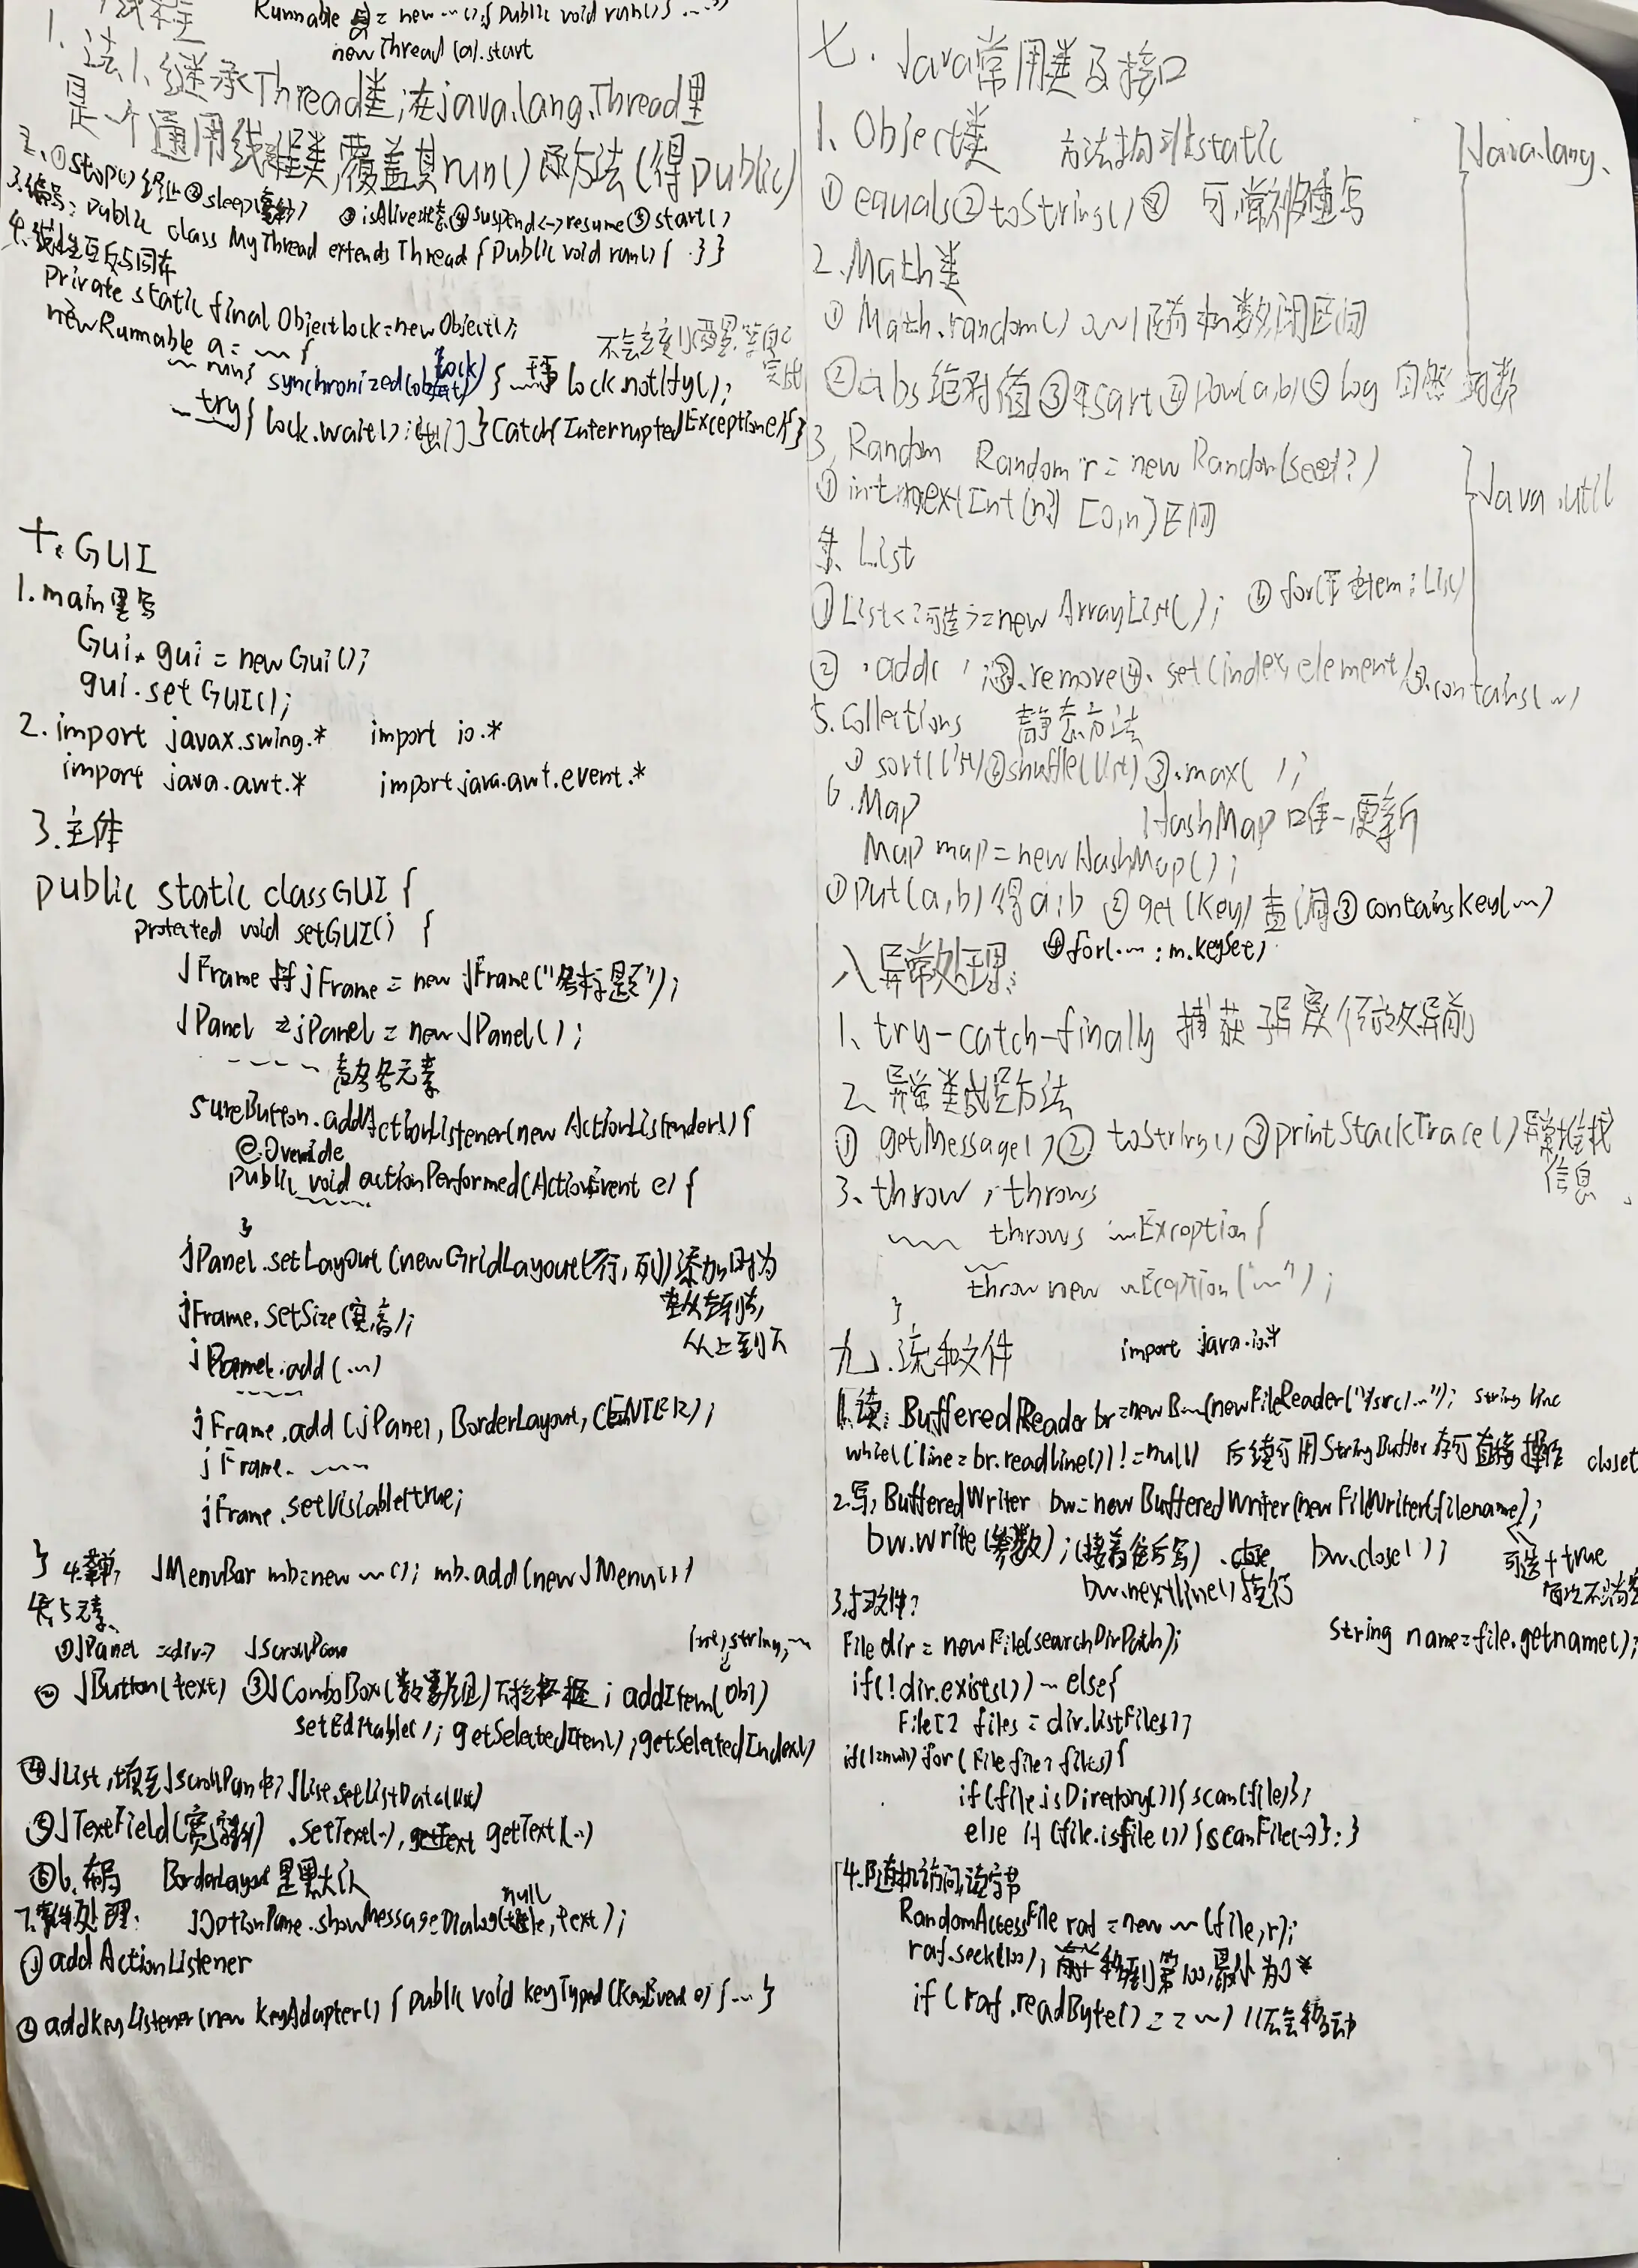 Runnable a = new ~(){ public void run() ...}
new Thread (a).start
1. 法1、继承Thread类,在java.lang.Thread里
是个通用线程类,覆盖其run()方法(得public)
2. ①stop()终止②sleep(毫秒) ③isAlive状态④suspend<->resume⑤start()
3.编写: public class MyThread extends Thread {public void run() { } }
4.线程互斥与同步
private static final Object lock=new Object();
new Runnable a = ~ {
~ run{ synchronized(lock) { ~ lock.notify();
~ try{ lock.wait(); } Catch(InterruptedException e){}
十. GUI
1. main里写
Gui gui = new Gui();
gui.set GUI();
2. import javax.swing.* import io.*
import java.awt.* import java.awt.event.*
3. 主体
public static class GUI {
protected void setGUI() {
JFrame jFrame = new JFrame("标题");
JPanel jPanel = new JPanel();
---- 各元素
sureButton.addActionListener(new ActionListender() {
@Override
public void actionPerformed(ActionEvent e) {
}
jPanel.setLayout (new GridLayout(行,列)) 添加时为
从左到右,
从上到下
jFrame.setSize(宽,高);
jPanel.add (...)
jFrame.add (jPanel, BorderLayout, CENTER);
jFrame. ~~
jFrame.setVisiable(true;
} 4.菜单, JMenuBar mb=new ~(); mb.add(new JMenu())
5元素、
①JPanel <div> JScrollPane
int,string,~
② JButton(text) ③JComboBox(数组)下拉框; addItem(obj)
setEditable(); getSelectedItem(); getSelectedIndex()
④JList,填至JScrollPan中,JList.setListData(list)
⑤JTextField(宽) .setText(~), getText(..)
6.布局 BorderLayout是默认
7.事件处理: JOptionPane.showMessageDialog(null, text);
① add ActionListener
② addKeyListener(new KeyAdapter() { public void keyTyped (KeyEvent e) {... }
七. Java常用类及接口
1、Object类 方法均非static } Java.lang.
① equals②toString() 可,常被重写
2. Math类
① Math.random() 0~1随机数闭区间
② abs绝对值③sqrt④pow(a,b)⑤log 自然对数
3. Random Random r = new Random(seed?) } Java.util
① int nextInt(n?) [0,n)区间
List
① List<可选>=new ArrayList(); ⑥ for( item : List)
② .add( );③.remove④. set(index, element)⑤.contains(~)
5. Collections 静态方法
① sort(list)②shuffle(list)③.max( );
6. Map HashMap 唯一更新
Map map=new HashMap();
① put(a,b)得a:b ② get(key)查询③ containsKey(~)
④for(.~ : m.keyset)
八 异常处理:
1、try-catch-finally
2、异常类成员方法
① getMessage()② toString()③printStackTrace()异常堆栈
信息
3、throw , throws
~~ throws ~Exception{
throw new ~Exception("~");
}
九. 流和文件 import java.io.*
1.读: BufferedReader br=new B~(new FileReader("/src/~"); string line
while((line=br.readline())!=null) 后续可用StringBuffer存可直接操作 close
2.写, BufferedWriter bw=new BufferedWriter(new FileWriter(filename);
bw.write(参数);(接着往后写) .close bw.close() 可选+true
bw.nextline()换行
3.扫文件?
File dir = new File(searchDirPath); String name=file.getname();
if(!dir.exists()) ~ else{
File[] files = dir.listFiles();
if(!=null) for(File file: files){
if(file.isDirectory()){scan(file)};
else if (file.isfile()) {scanFile(~)}; }
4.随机访问,读字节
RandomAccessFile raf = new ~ (file,r);
raf.seek(100); 移到第100,最小为0
if (raf.readByte() == ~) //会移动